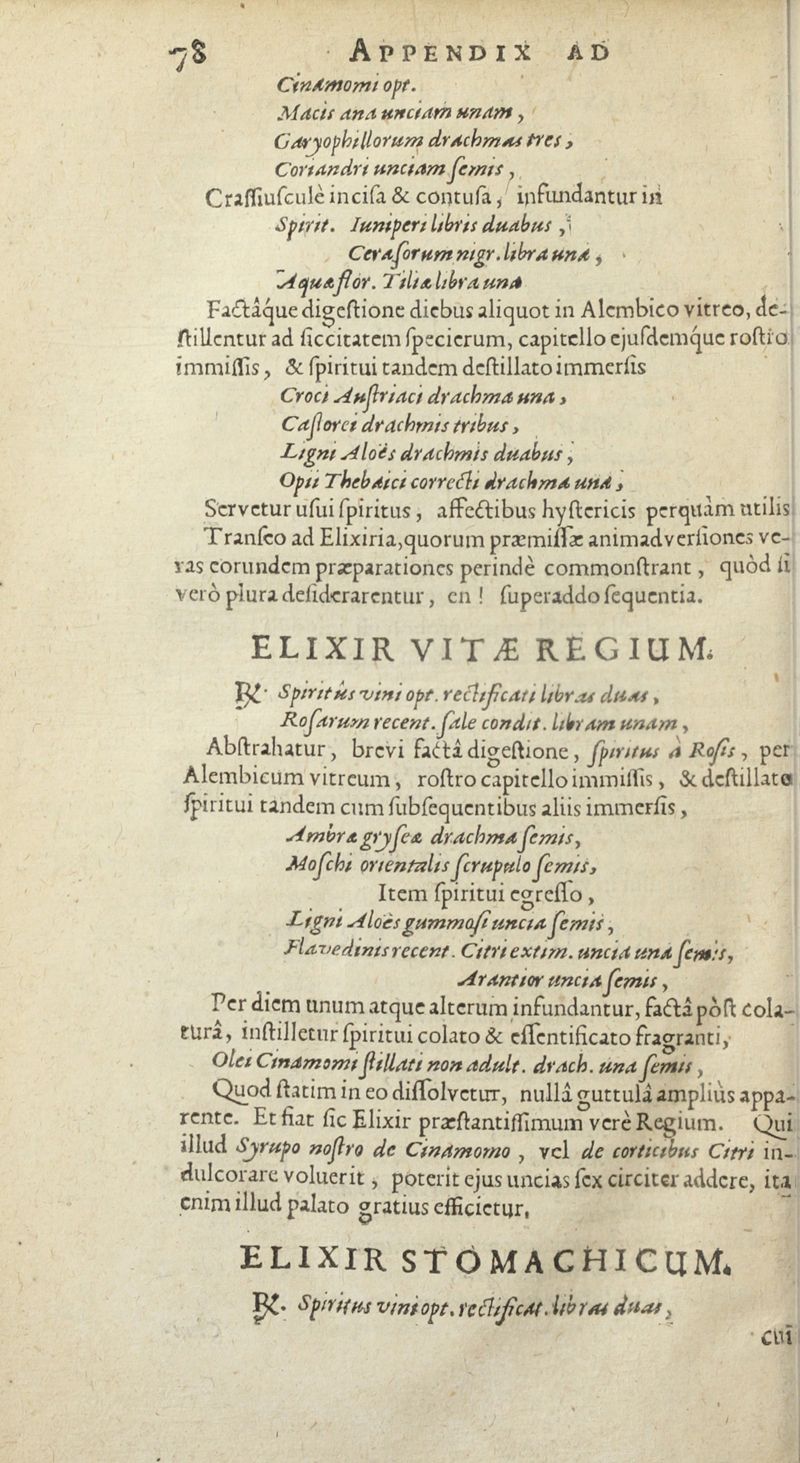 78 APPENDIX AD
Cinamomi opt.
Macis ana unciam unam,
Garyophillorum drachmas tres,
Coriandri unciam ſemis,
Craſſiuſculè inciſa & contuſa, infundantur in
Spirit. Iuniperi libris duabus,
Ceraſorum nigr. libra una,
Aquæ flor. Tiliæ libra una
Factâque digeſtione diebus aliquot in Alembico vitreo, de-
ſtillentur ad ſiccitatem ſpecierum, capitello ejuſdemque roſtro
immiſſis, & ſpiritui tandem deſtillato immerſis
Croci Auſtriaci drachma una,
Caſtorei drachmis tribus,
Ligni Aloës drachmis duabus,
Opii Thebaici correcti drachma una,
Servetur uſui ſpiritus, affectibus hyſtericis perquàm utilis
Tranſeo ad Elixiria, quorum præmiſſæ animadverſiones ve-
ras eorundem præparationes perindè commonſtrant, quòd ſi
verò plura deſiderarentur, en! ſuperaddo ſequentia.
ELIXIR VITÆ REGIUM.
℞. Spiritûs vini opt. rectificati libras duas,
Roſarum recent. ſale condit. libram unam,
Abſtrahatur, brevi factâ digeſtione, ſpiritus à Roſis, per
Alembicum vitreum, roſtro capitello immiſſis, & deſtillato
ſpiritui tandem cum ſubſequentibus aliis immerſis,
Ambræ gryſeæ drachma ſemis,
Moſchi orientalis ſcrupulo ſemis,
Item ſpiritui egreſſo,
Ligni Aloës gummoſi uncia ſemis,
Flavedinis recent. Citri extim. uncia una ſemis,
Arantior uncia ſemis,
Per diem unum atque alterum infundantur, factâ pòſt cola-
turâ, inſtilletur ſpiritui colato & eſſentificato fragranti,
Olei Cinamomi ſtillati non adult. drach. una ſemis,
Quod ſtatim in eo diſſolvetur, nullâ guttulâ ampliùs appa-
rente. Et fiat ſic Elixir præſtantiſſimum verè Regium. Qui
illud Syrupo noſtro de Cinamomo, vel de corticibus Citri in-
dulcorare voluerit, poterit ejus uncias ſex circiter addere, ita
enim illud palato gratius efficietur.
ELIXIR STOMACHICUM.
℞. Spiritus vini opt. rectificat. libras duas,
cui